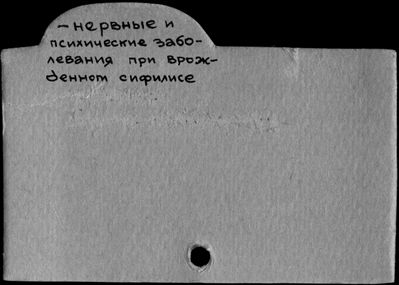 - нервные и
психические забо-
левания при врож-
денном сифилисе